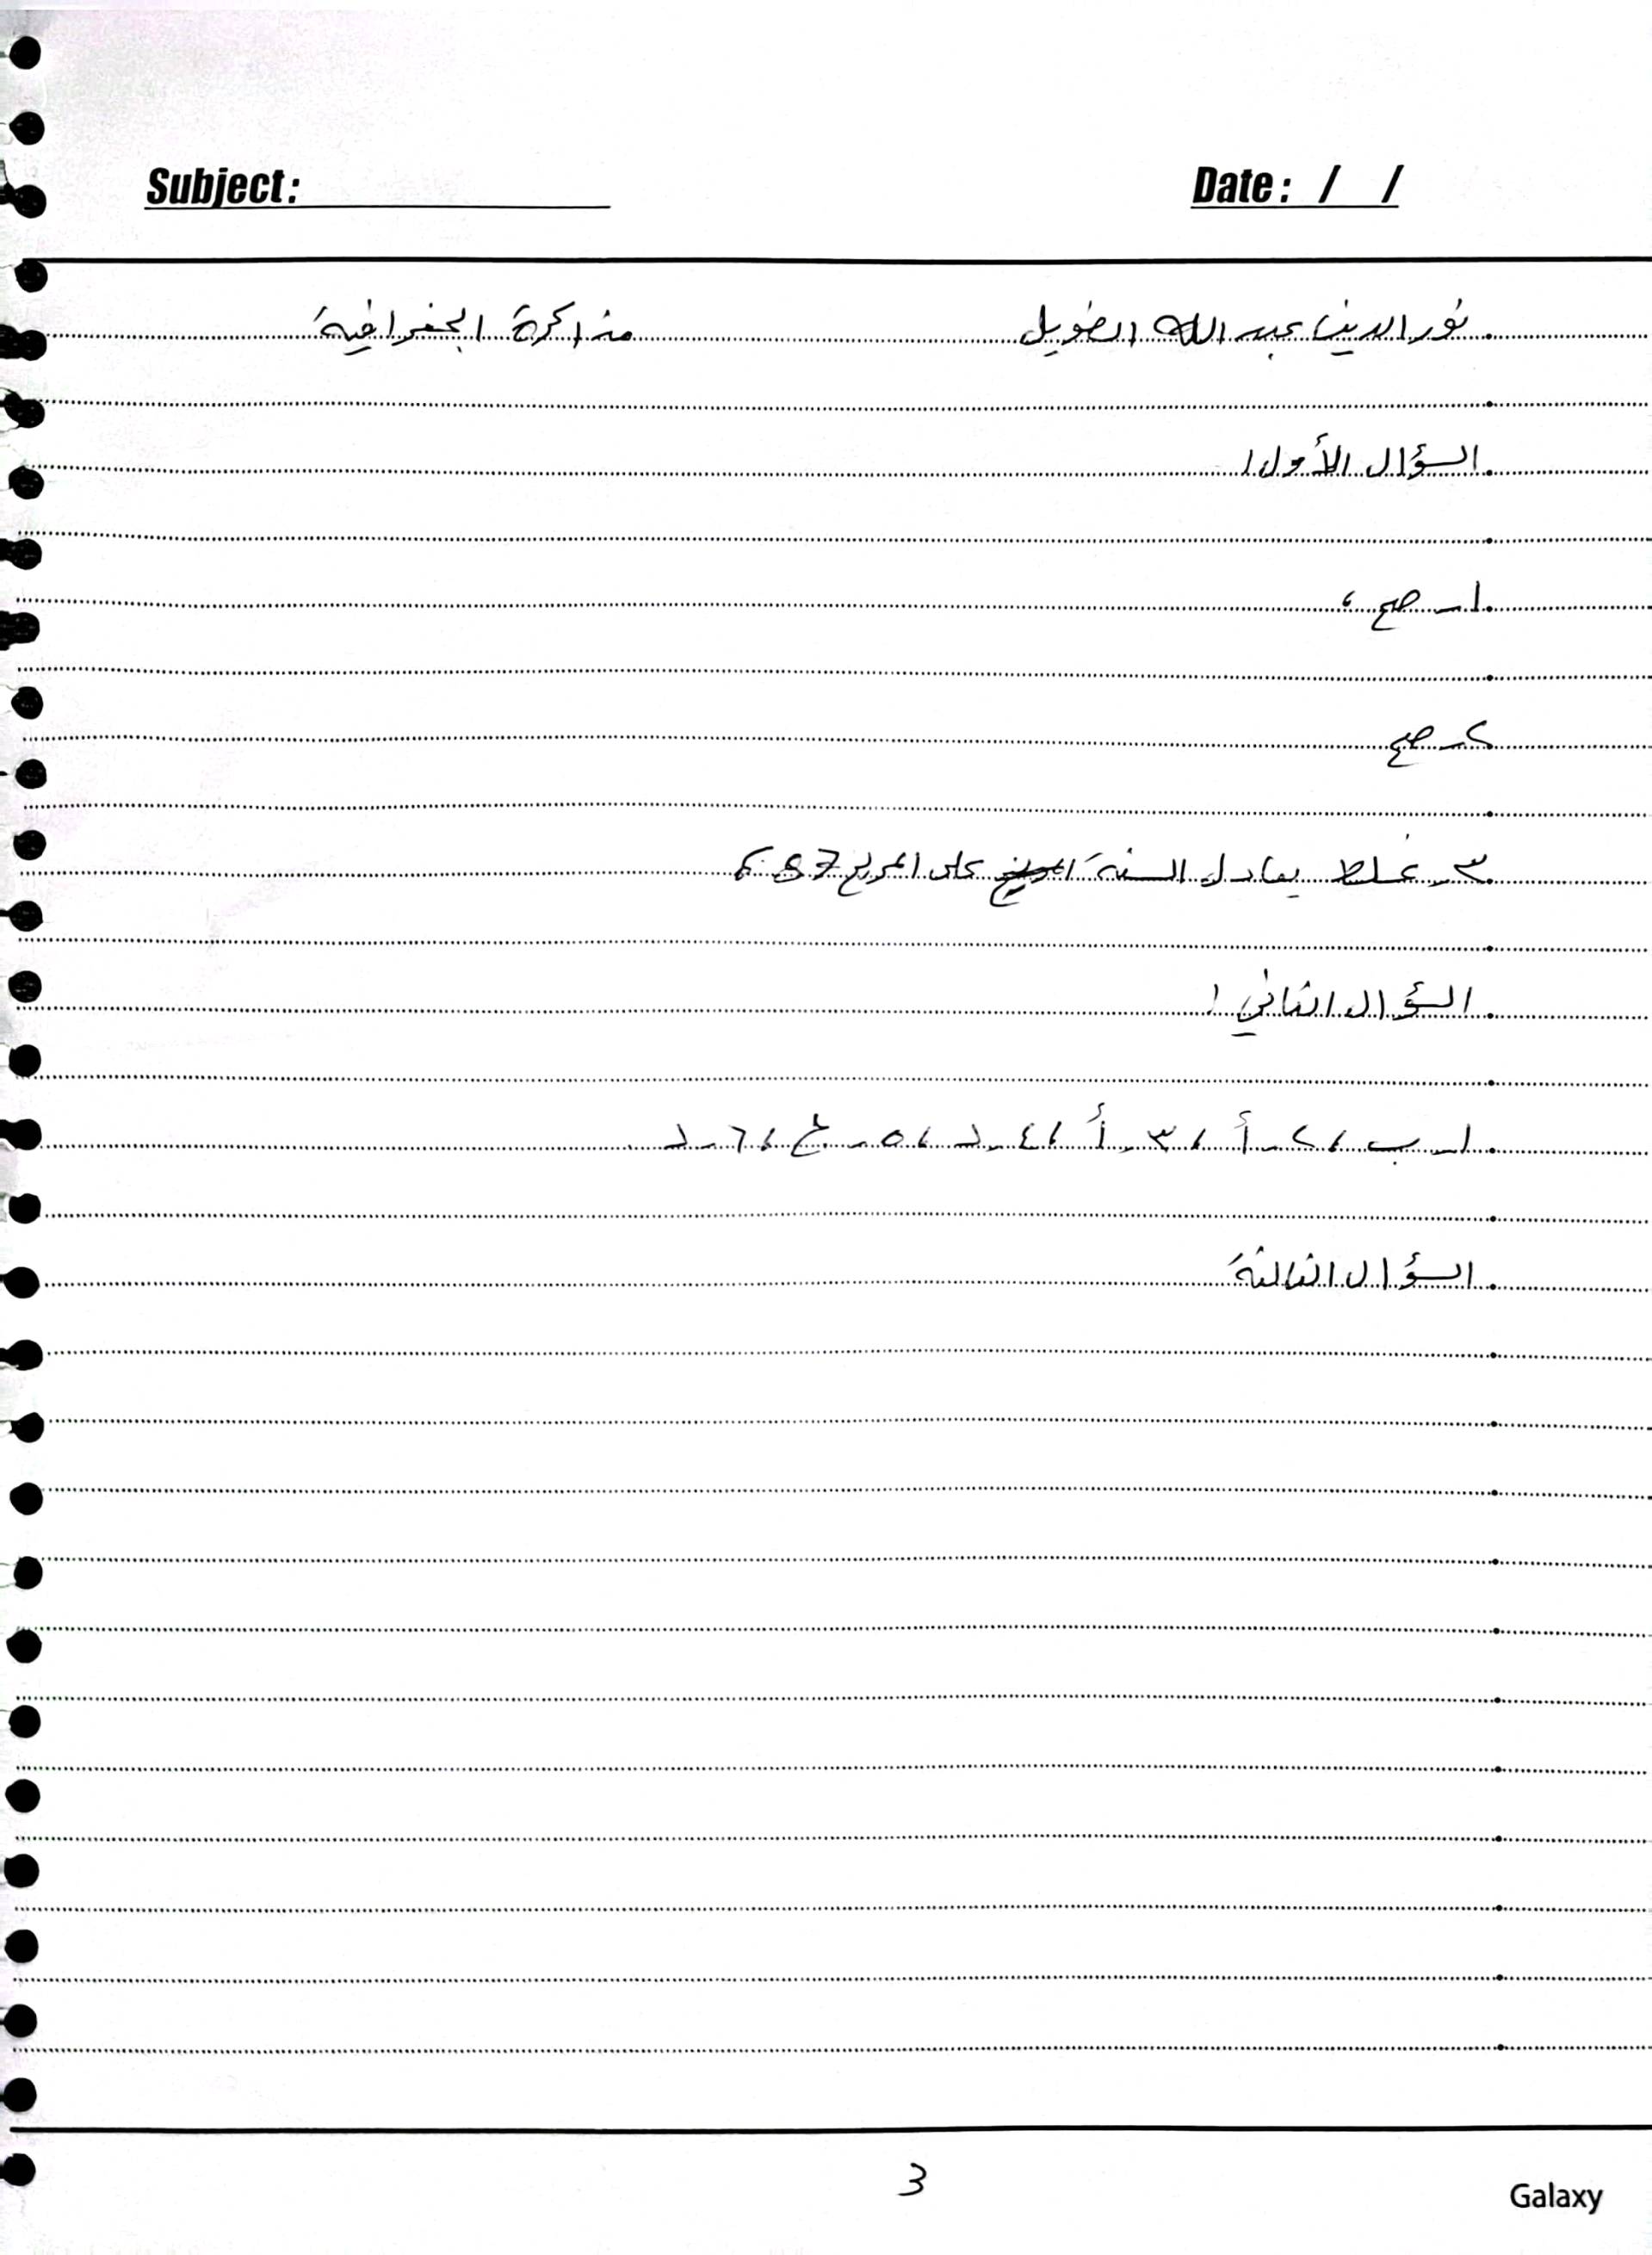 Subject: Date: / /
نور الدين عبد الله الضويل مذاكرة الجغرافية
السؤال الأول:
١- صح ،
٢- صح
٣- غلط يعادل السنة المريخ على المريخ 687
السؤال الثاني:
١- ب ، ٢- أ ، ٣- أ ، ٤- د ، ٥- ج ، ٦- د
السؤال الثالثة
3
Galaxy